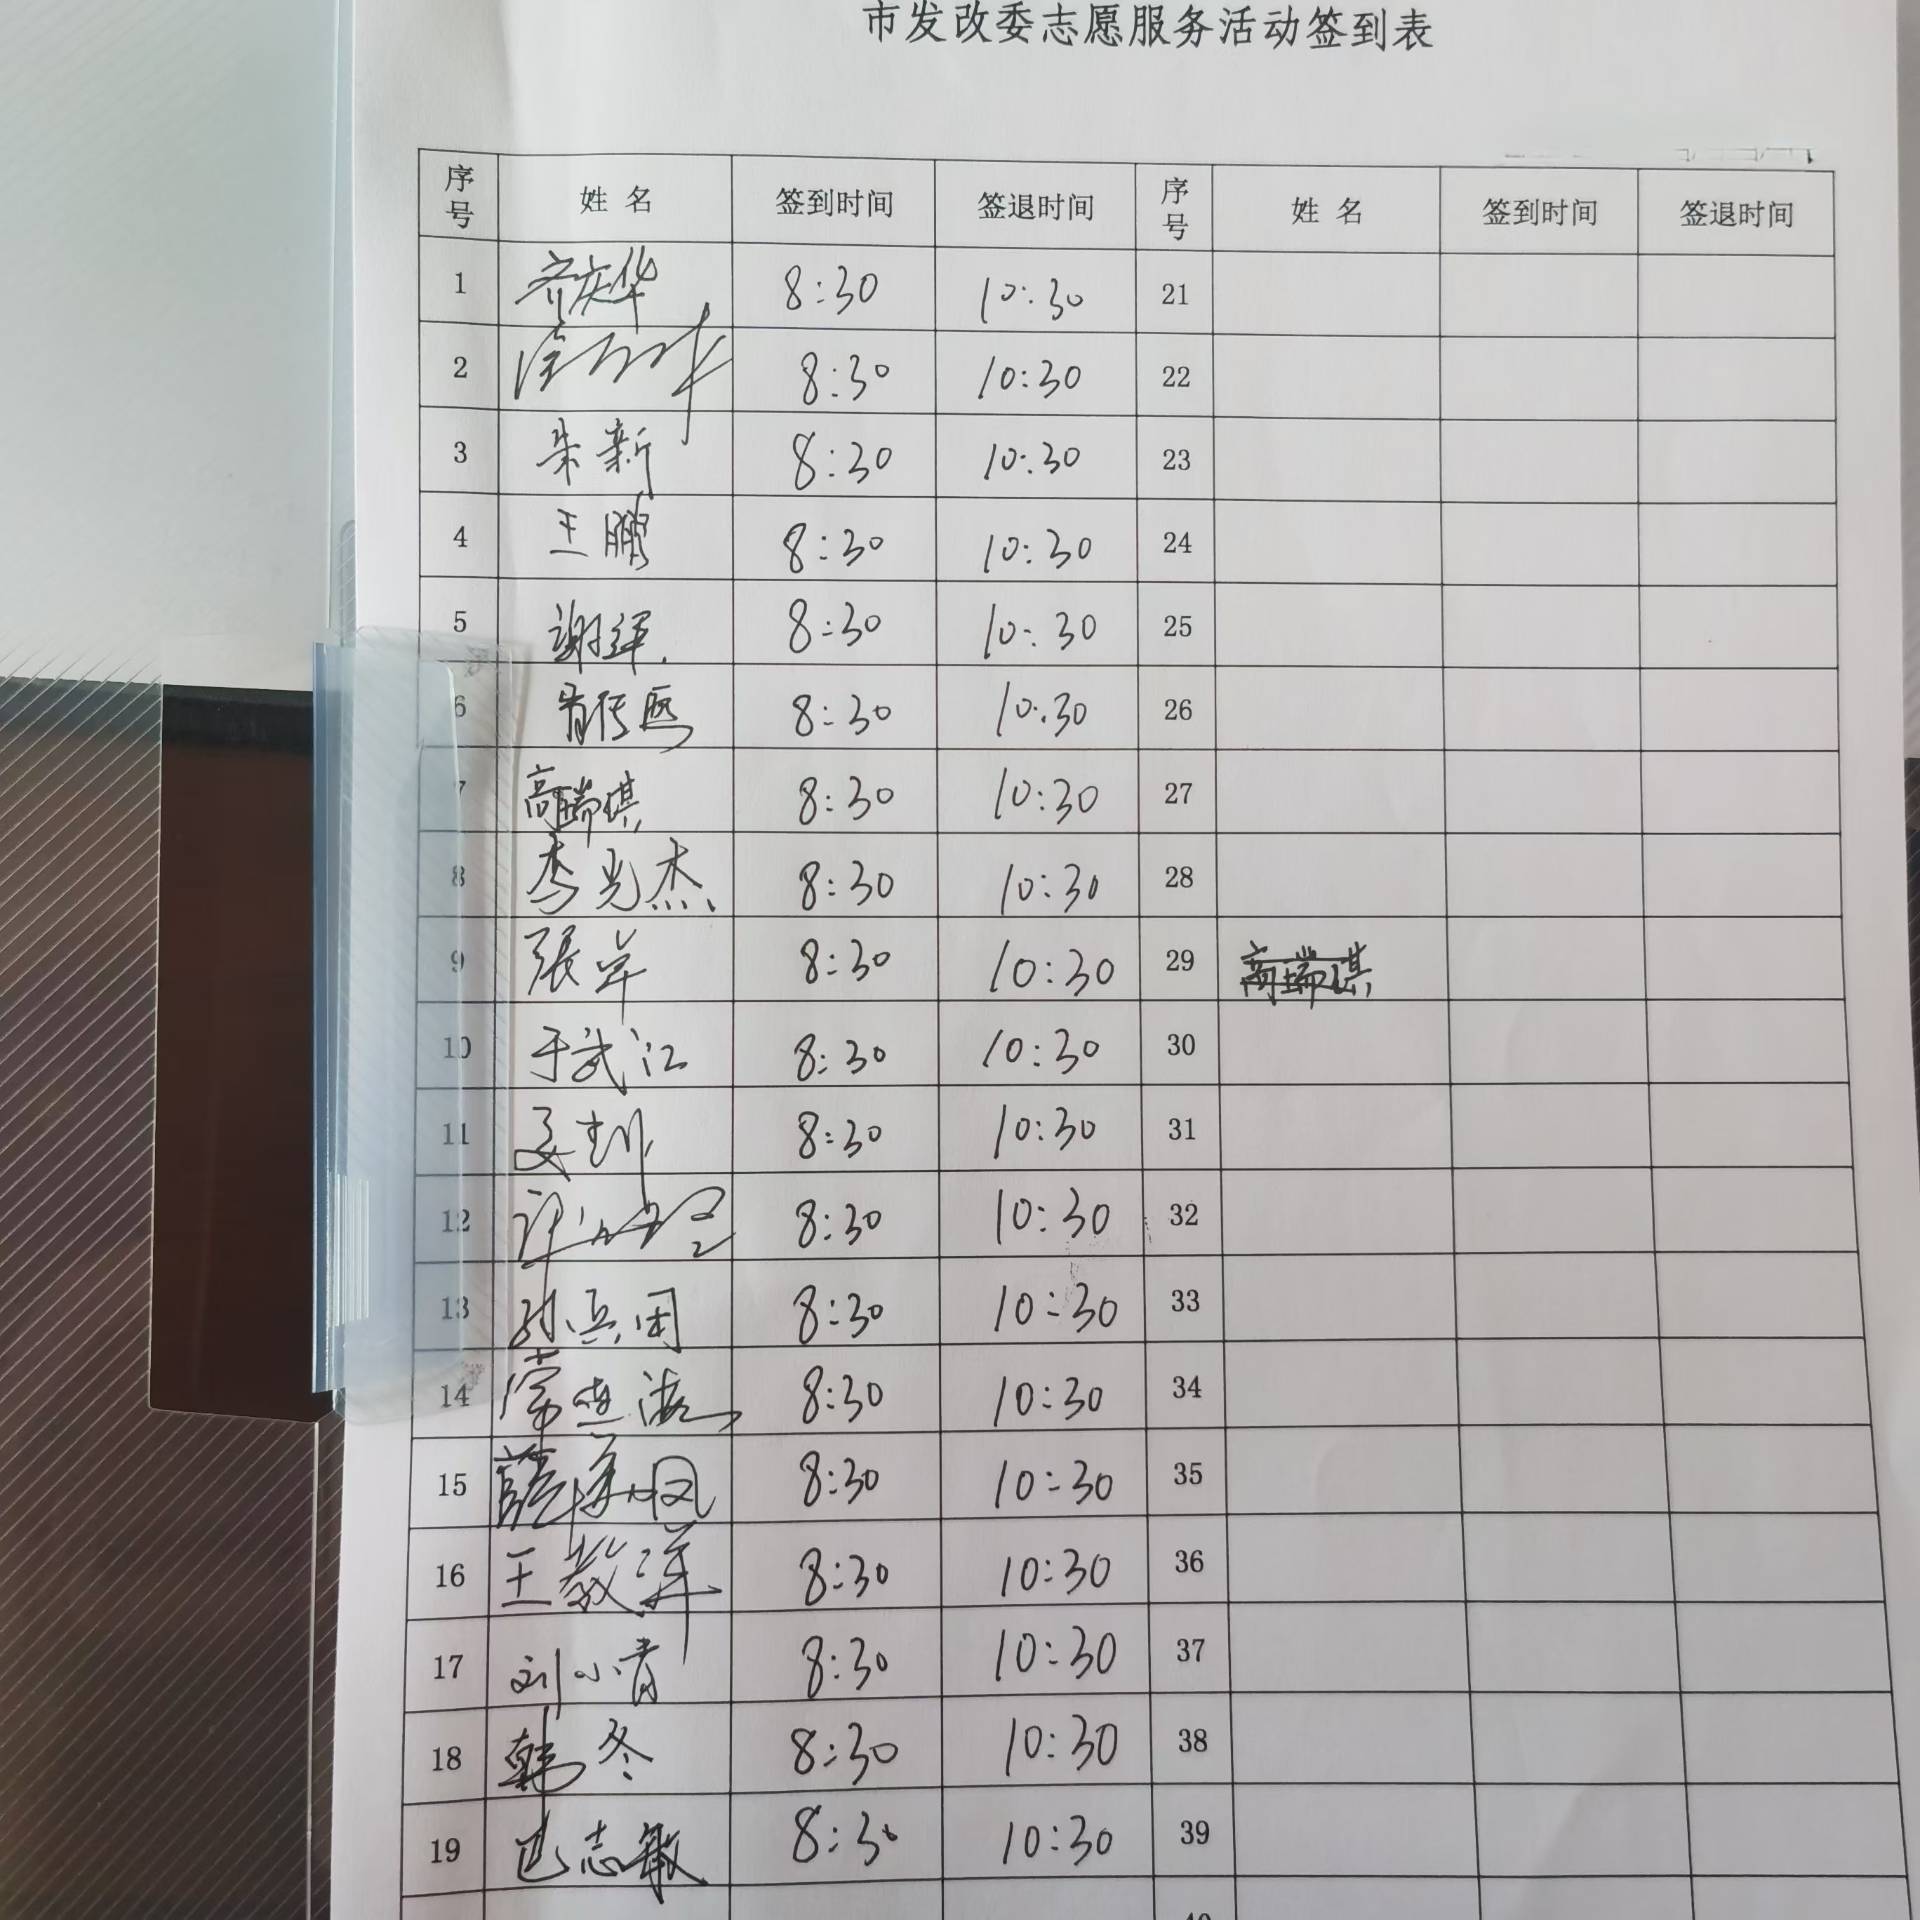 市发改委志愿服务活动签到表
序号 姓名 签到时间 签退时间 序号 姓名 签到时间 签退时间
1 齐庆华 8:30 10:30 21
2 8:30 10:30 22
3 朱新 8:30 10:30 23
4 王鹏 8:30 10:30 24
5 谢辉 8:30 10:30 25
6 8:30 10:30 26
7 高瑞祺 8:30 10:30 27
8 李光杰 8:30 10:30 28
9 張岸 8:30 10:30 29 高瑞祺
10 于武江 8:30 10:30 30
11 8:30 10:30 31
12 8:30 10:30 32
13 孙兵团 8:30 10:30 33
14 8:30 10:30 34
15 8:30 10:30 35
16 王教洋 8:30 10:30 36
17 刘小青 8:30 10:30 37
18 韩冬 8:30 10:30 38
19 志敏 8:30 10:30 39